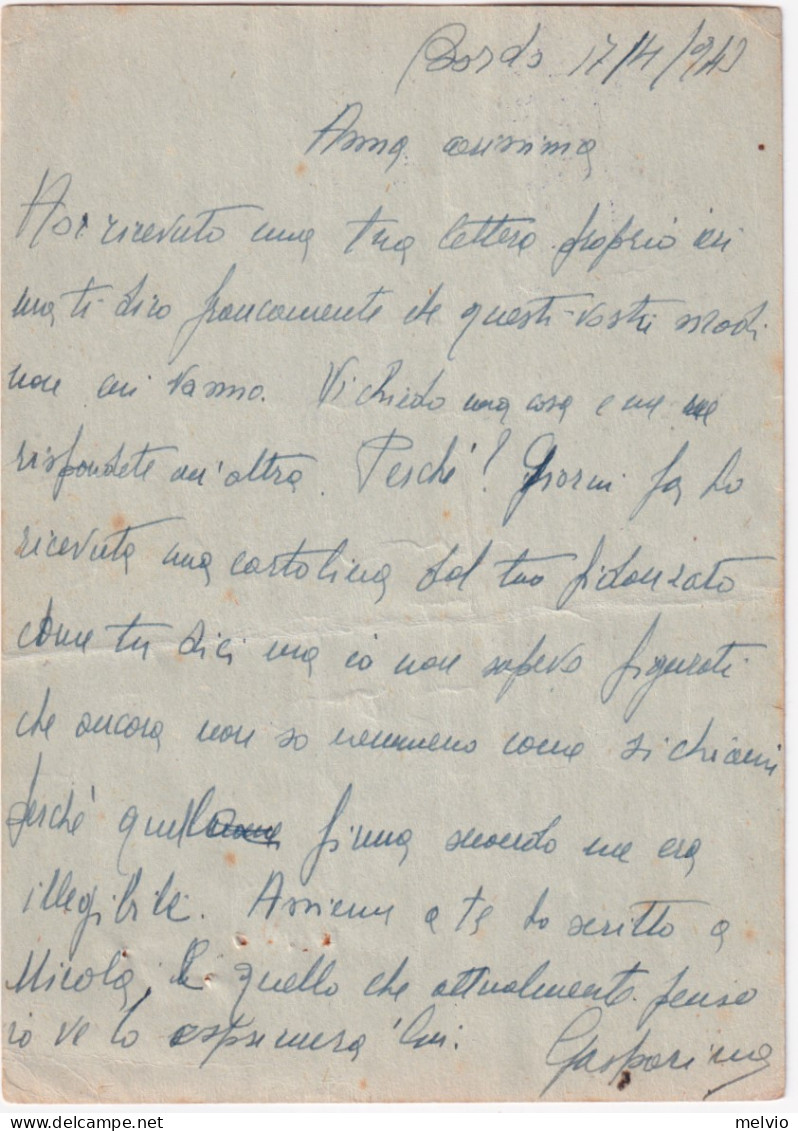 Bordo 17/4/942
Anna carissima
Ho ricevuto una tua lettera proprio ieri
ma ti dico francamente che questi vostri modi
non mi vanno. Vi chiedo una cosa e me ne
rispondete un'altra. Perché? Giorni fa ho
ricevuta una cartolina dal tuo fidanzato
come tu dici ma io non sapevo figurati
che ancora non so nemmeno come si chiami
perché quella firma secondo me era
illegibile. Assieme a te ho scritto a
Nicola, quello che attualmente penso
io ve lo esprimerà lui. Gasparina
melvio